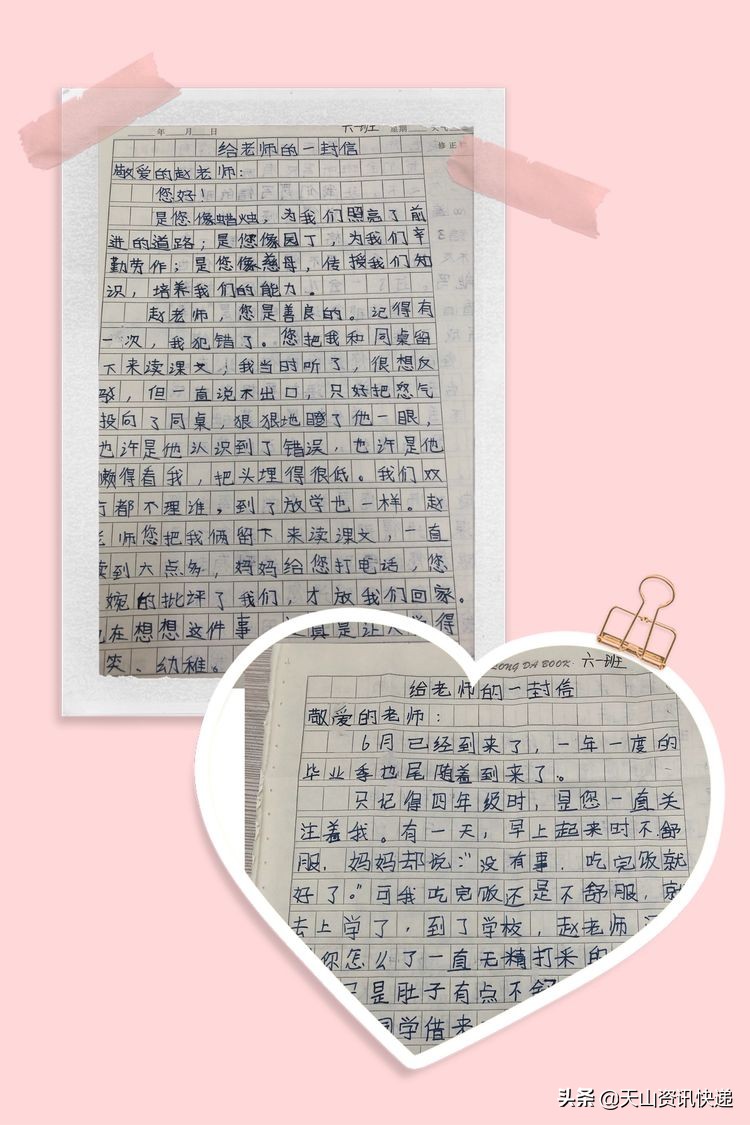 年 月 日
六一班
星期
天气
修正
给老师的一封信
敬爱的赵老师:
您好!
是您像蜡烛,为我们照亮了前
进的道路;是您像园丁,为我们辛
勤劳作;是您像慈母,传授我们知
识,培养我们的能力。
赵老师,您是善良的。记得有
一次,我犯错了。您把我和同桌留
下来读课文,我当时听了,很想反
驳,但一直说不出口,只好把怒气
投向了同桌,狠狠地瞪了他一眼,
也许是他认识到了错误,也许是他
懒得看我,把头埋得很低。我们双
方都不理谁,到了放学也一样。赵
老师您把我俩留下来读课文,一直
读到六点多,妈妈给您打电话,您
婉的批评了我们,才放我们回家。
在想想这件事 真是让人觉得
笑、幼稚。
LONG DA BOOK
六一班
给老师的一封信
敬爱的老师:
6月已经到来了,一年一度的
毕业季也尾随着到来了。
只记得四年级时,是您一直关
注着我。有一天,早上起来时不舒
服,妈妈却说:"没有事,吃完饭就
好了。"可我吃完饭还是不舒服,就
去上学了,到了学校,赵老师
你怎么了一直无精打采的
是肚子有点不舒
同学借来
头条 @天山资讯快递